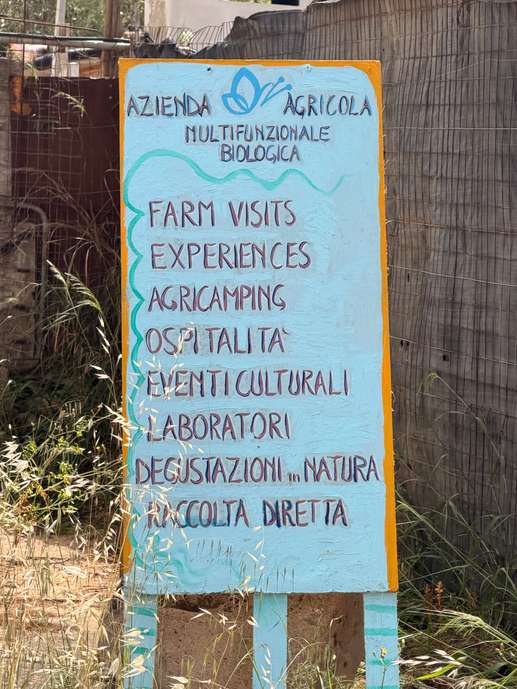 AZIENDA AGRICOLA
MULTIFUNZIONALE
BIOLOGICA
FARM VISITS
EXPERIENCES
AGRICAMPING
OSPITALITA`
EVENTI CULTURALI
LABORATORI
DEGUSTAZIONI in NATURA
RACCOLTA DIRETTA